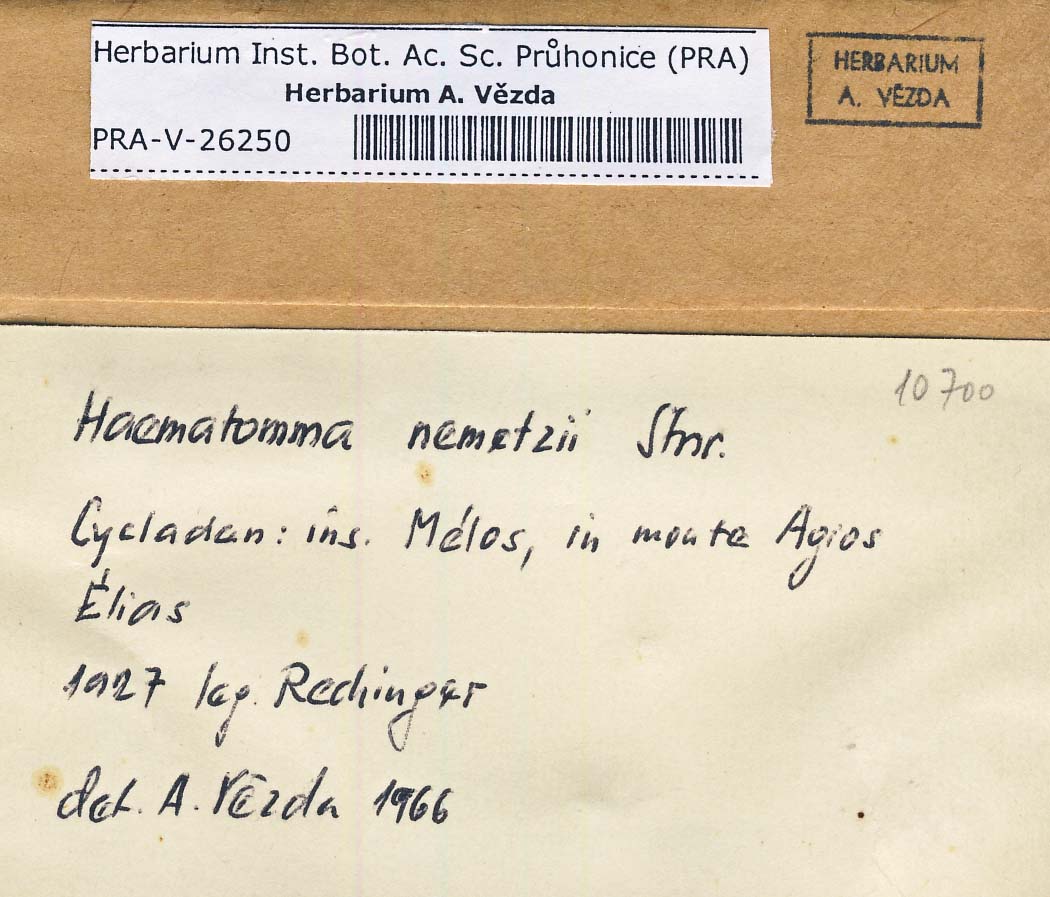 Herbarium Inst. Bot. Ac. Sc. Průhonice (PRA)
Herbarium A. Vězda
PRA-V-26250
HERBARIUM
A. VĚZDA
10700
Haematomma nemetzii Stnr.
Cycladen: ins. Mélos, in monte Agios
Élias
1927 leg. Rechinger
det. A. Vězda 1966